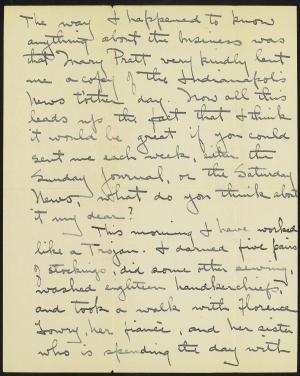 The way I happened to know
anything about the business was
that Mary Pratt very kindly lent
me a copy of the Indianapolis
News t'other day. Now all this
leads up the fact that I think
it would be great if you could
sent me each week, either the
Sunday Journal, or the Saturday
News, what do you think about
it my dear?
This morning I have worked
like a Trojan. I darned five pairs
of stockings, did some other sewing,
washed eighteen handkerchiefs,
and took a walk with Florence
Lowry, her fiancé, and her sister
who is spending the day with